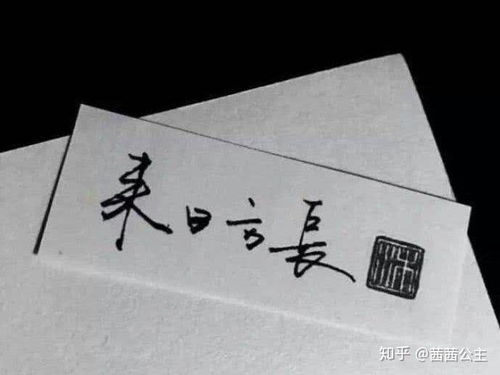 来日方長
知乎 @茜茜公主